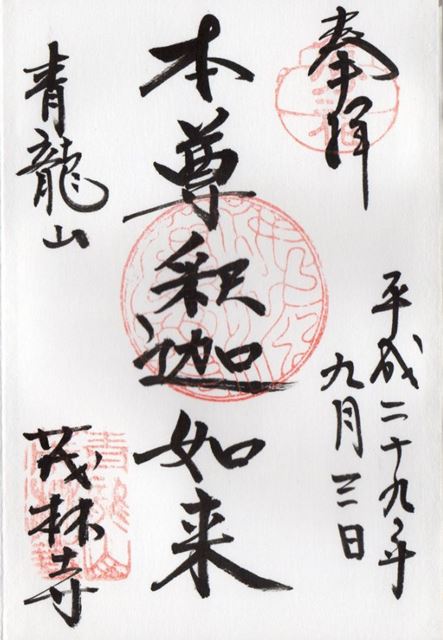 奉拝
平成二十九年
九月三日
本尊釈迦如来
青龍山
茂林寺